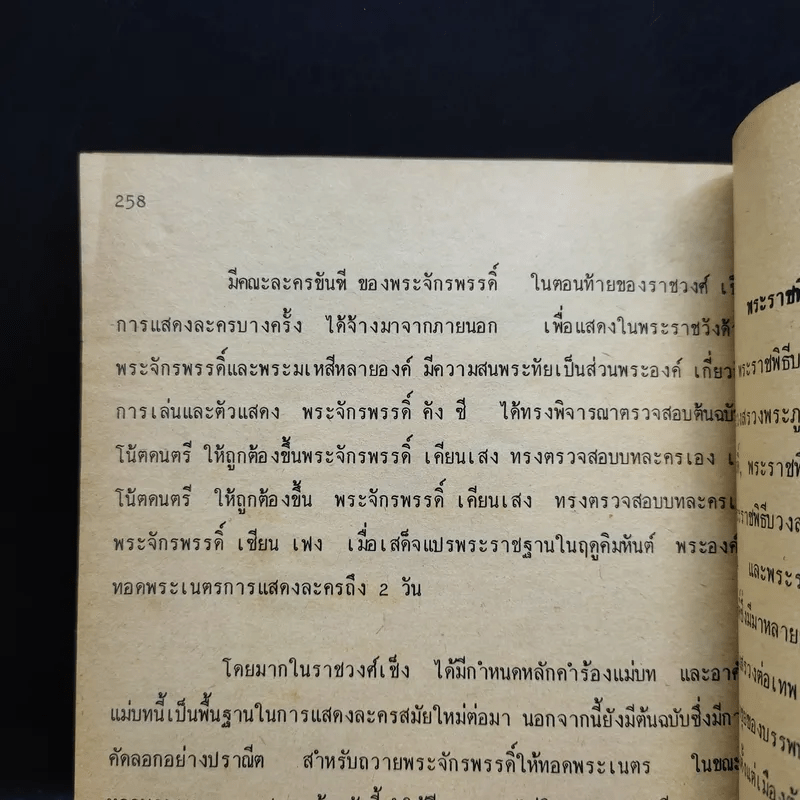 258
มีคณะละครขันที ของพระจักรพรรดิ์ ในตอนท้ายของราชวงศ์
การแสดงละครบางครั้ง ได้จ้างมาจากภายนอก เพื่อแสดงในพระราชวัง
พระจักรพรรดิ์และพระมเหสีหลายองค์ มีความสนพระทัยเป็นส่วนพระองค์
การเล่นและตัวแสดง พระจักรพรรดิ์ คัง ซี ได้ทรงพิจารณาตรวจสอบต้นฉบับ
โน้ตดนตรี ให้ถูกต้องขึ้นพระจักรพรรดิ์ เคียนเสง ทรงตรวจสอบบทละครเอง
โน้ตดนตรี ให้ถูกต้องขึ้น พระจักรพรรดิ์ เคียนเสง ทรงตรวจสอบบทละคร
พระจักรพรรดิ์ เซียน เฟง เมื่อเสด็จแปรพระราชฐานในฤดูคิมหันต์ พระองค์
ทอดพระเนตรการแสดงละครถึง 2 วัน
โดยมากในราชวงศ์เช็ง ได้มีกำหนดหลักคำร้องแม่บท
แม่บทนี้เป็นพื้นฐานในการแสดงละครสมัยใหม่ต่อมา นอกจากนี้ยังมีต้นฉบับซึ่งมี
คัดลอกอย่างปราณีต สำหรับถวายพระจักรพรรดิ์ให้ทอดพระเนตร ในขณะ
พระราช
พระราชพิธี
พระภู
พระราช
ราชพิธีบวงส
และพระ
มีมาหลาย
ต่อเทพ
ของบรรพ